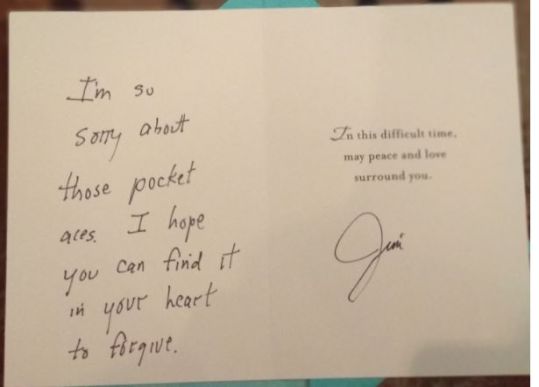 I'm so
sorry about
those pocket
aces. I hope
you can find it
in your heart
to forgive.
In this difficult time,
may peace and love
surround you.
Jim